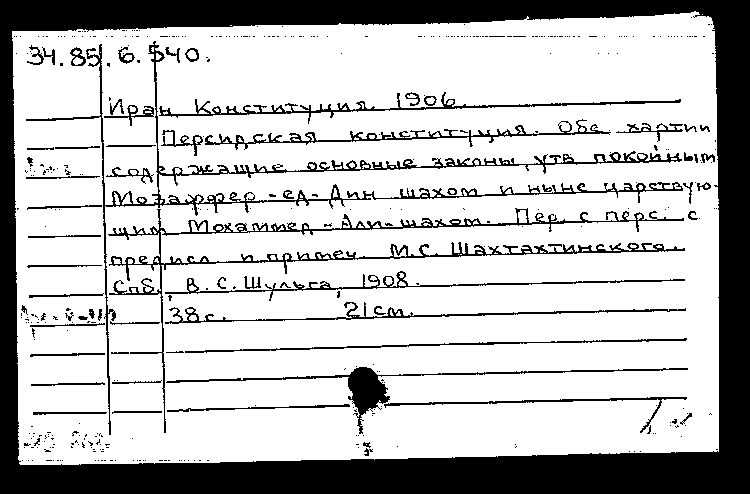 34.85.6.540.
Иран. Конституция. 1906.
Персидская конституция. Обе хартии
содержащие основные законы, утв покойным
Мозаффер-ед-Дин шахом и ныне царствую-
щим Мохаммед-Али-шахом. Пер. с перс. с
предисл и примеч. М.С. Шахтахтинского.
Спб., В.С. Шульга, 1908.
38 с. 21 см.